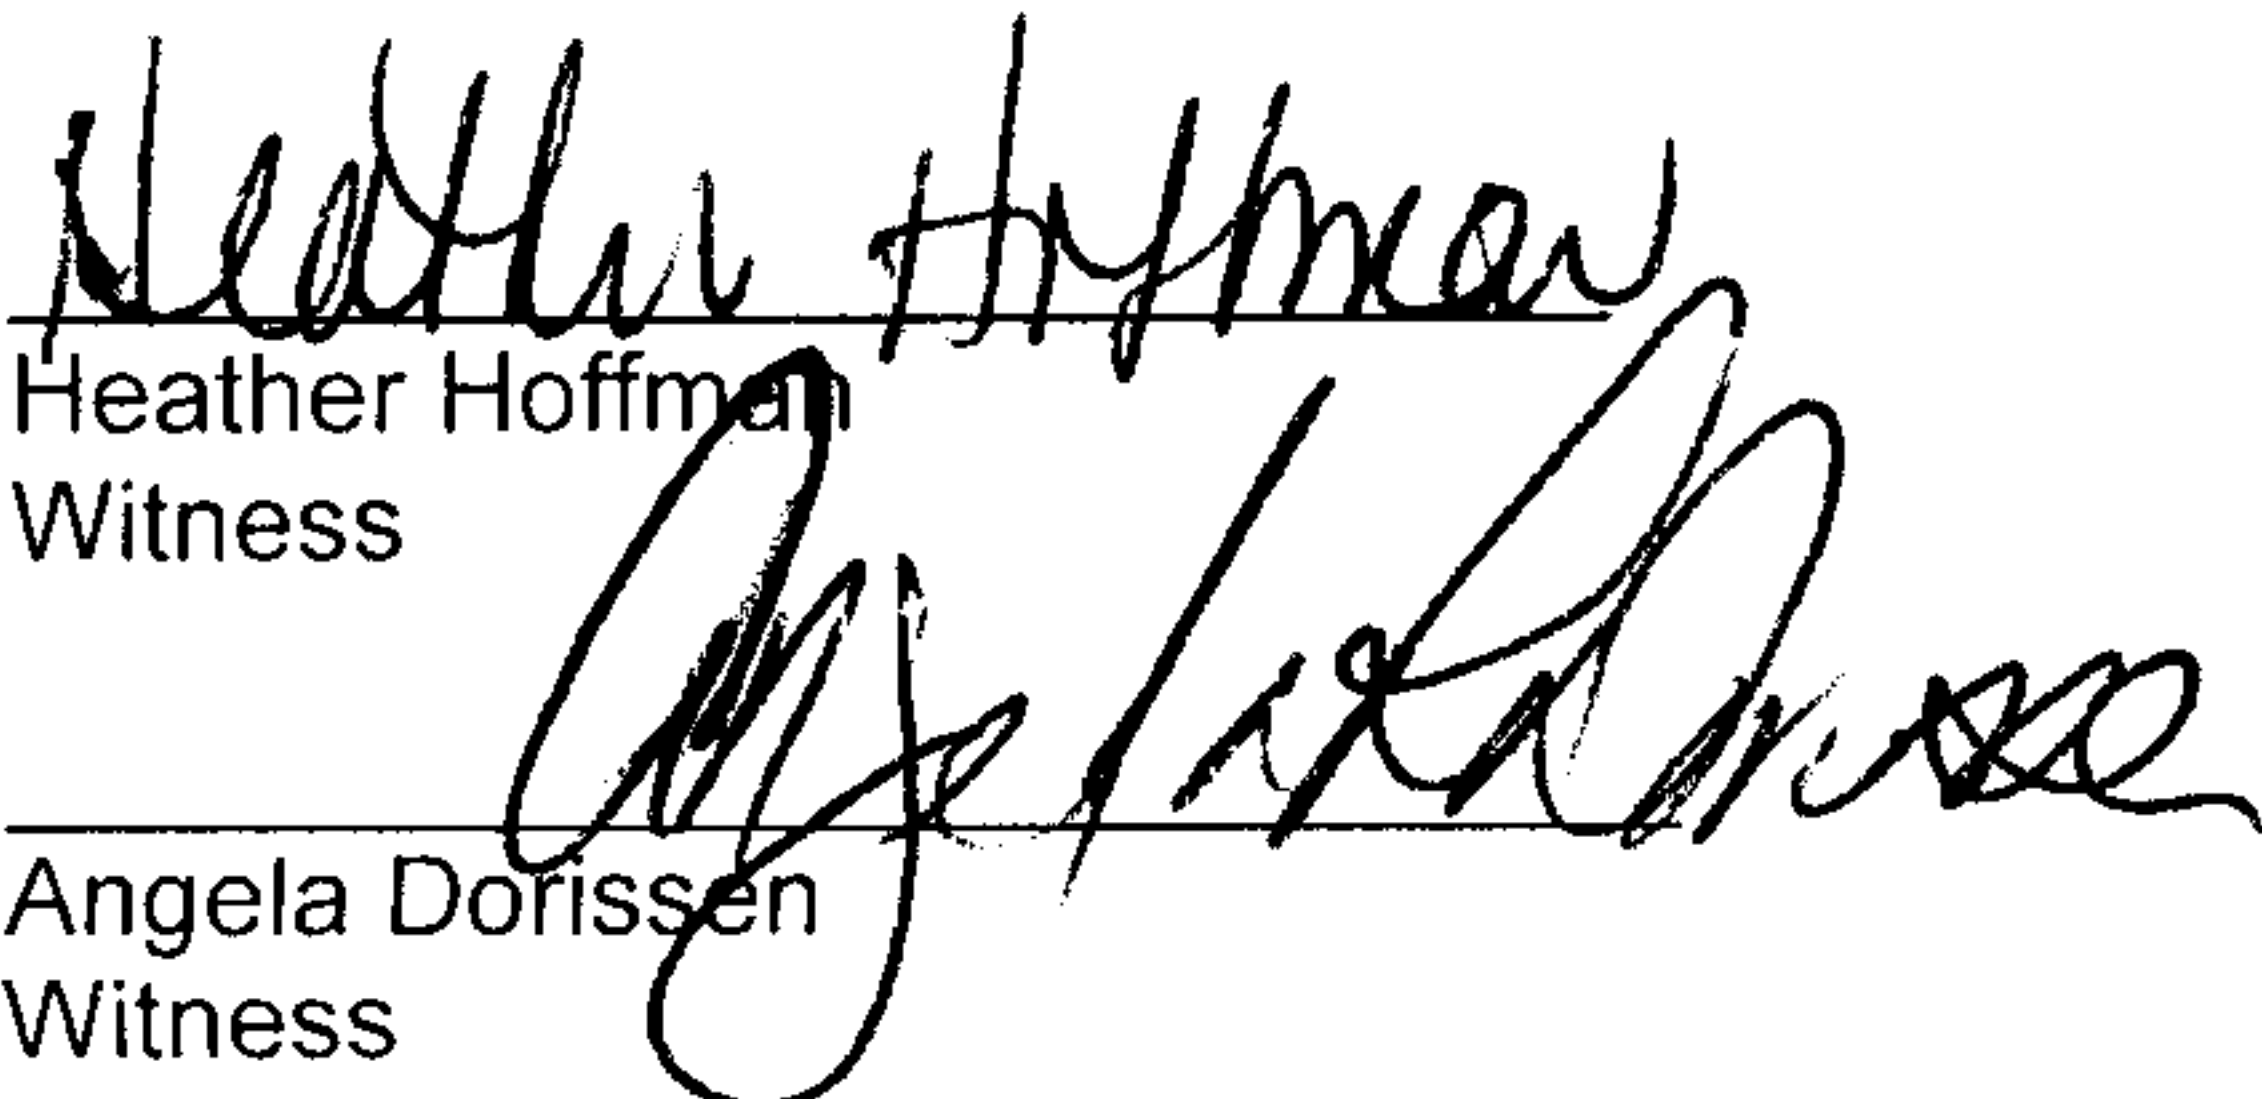 Heather Hoffman
Heather Hoffman
Witness
Angela Dorissen
Witness